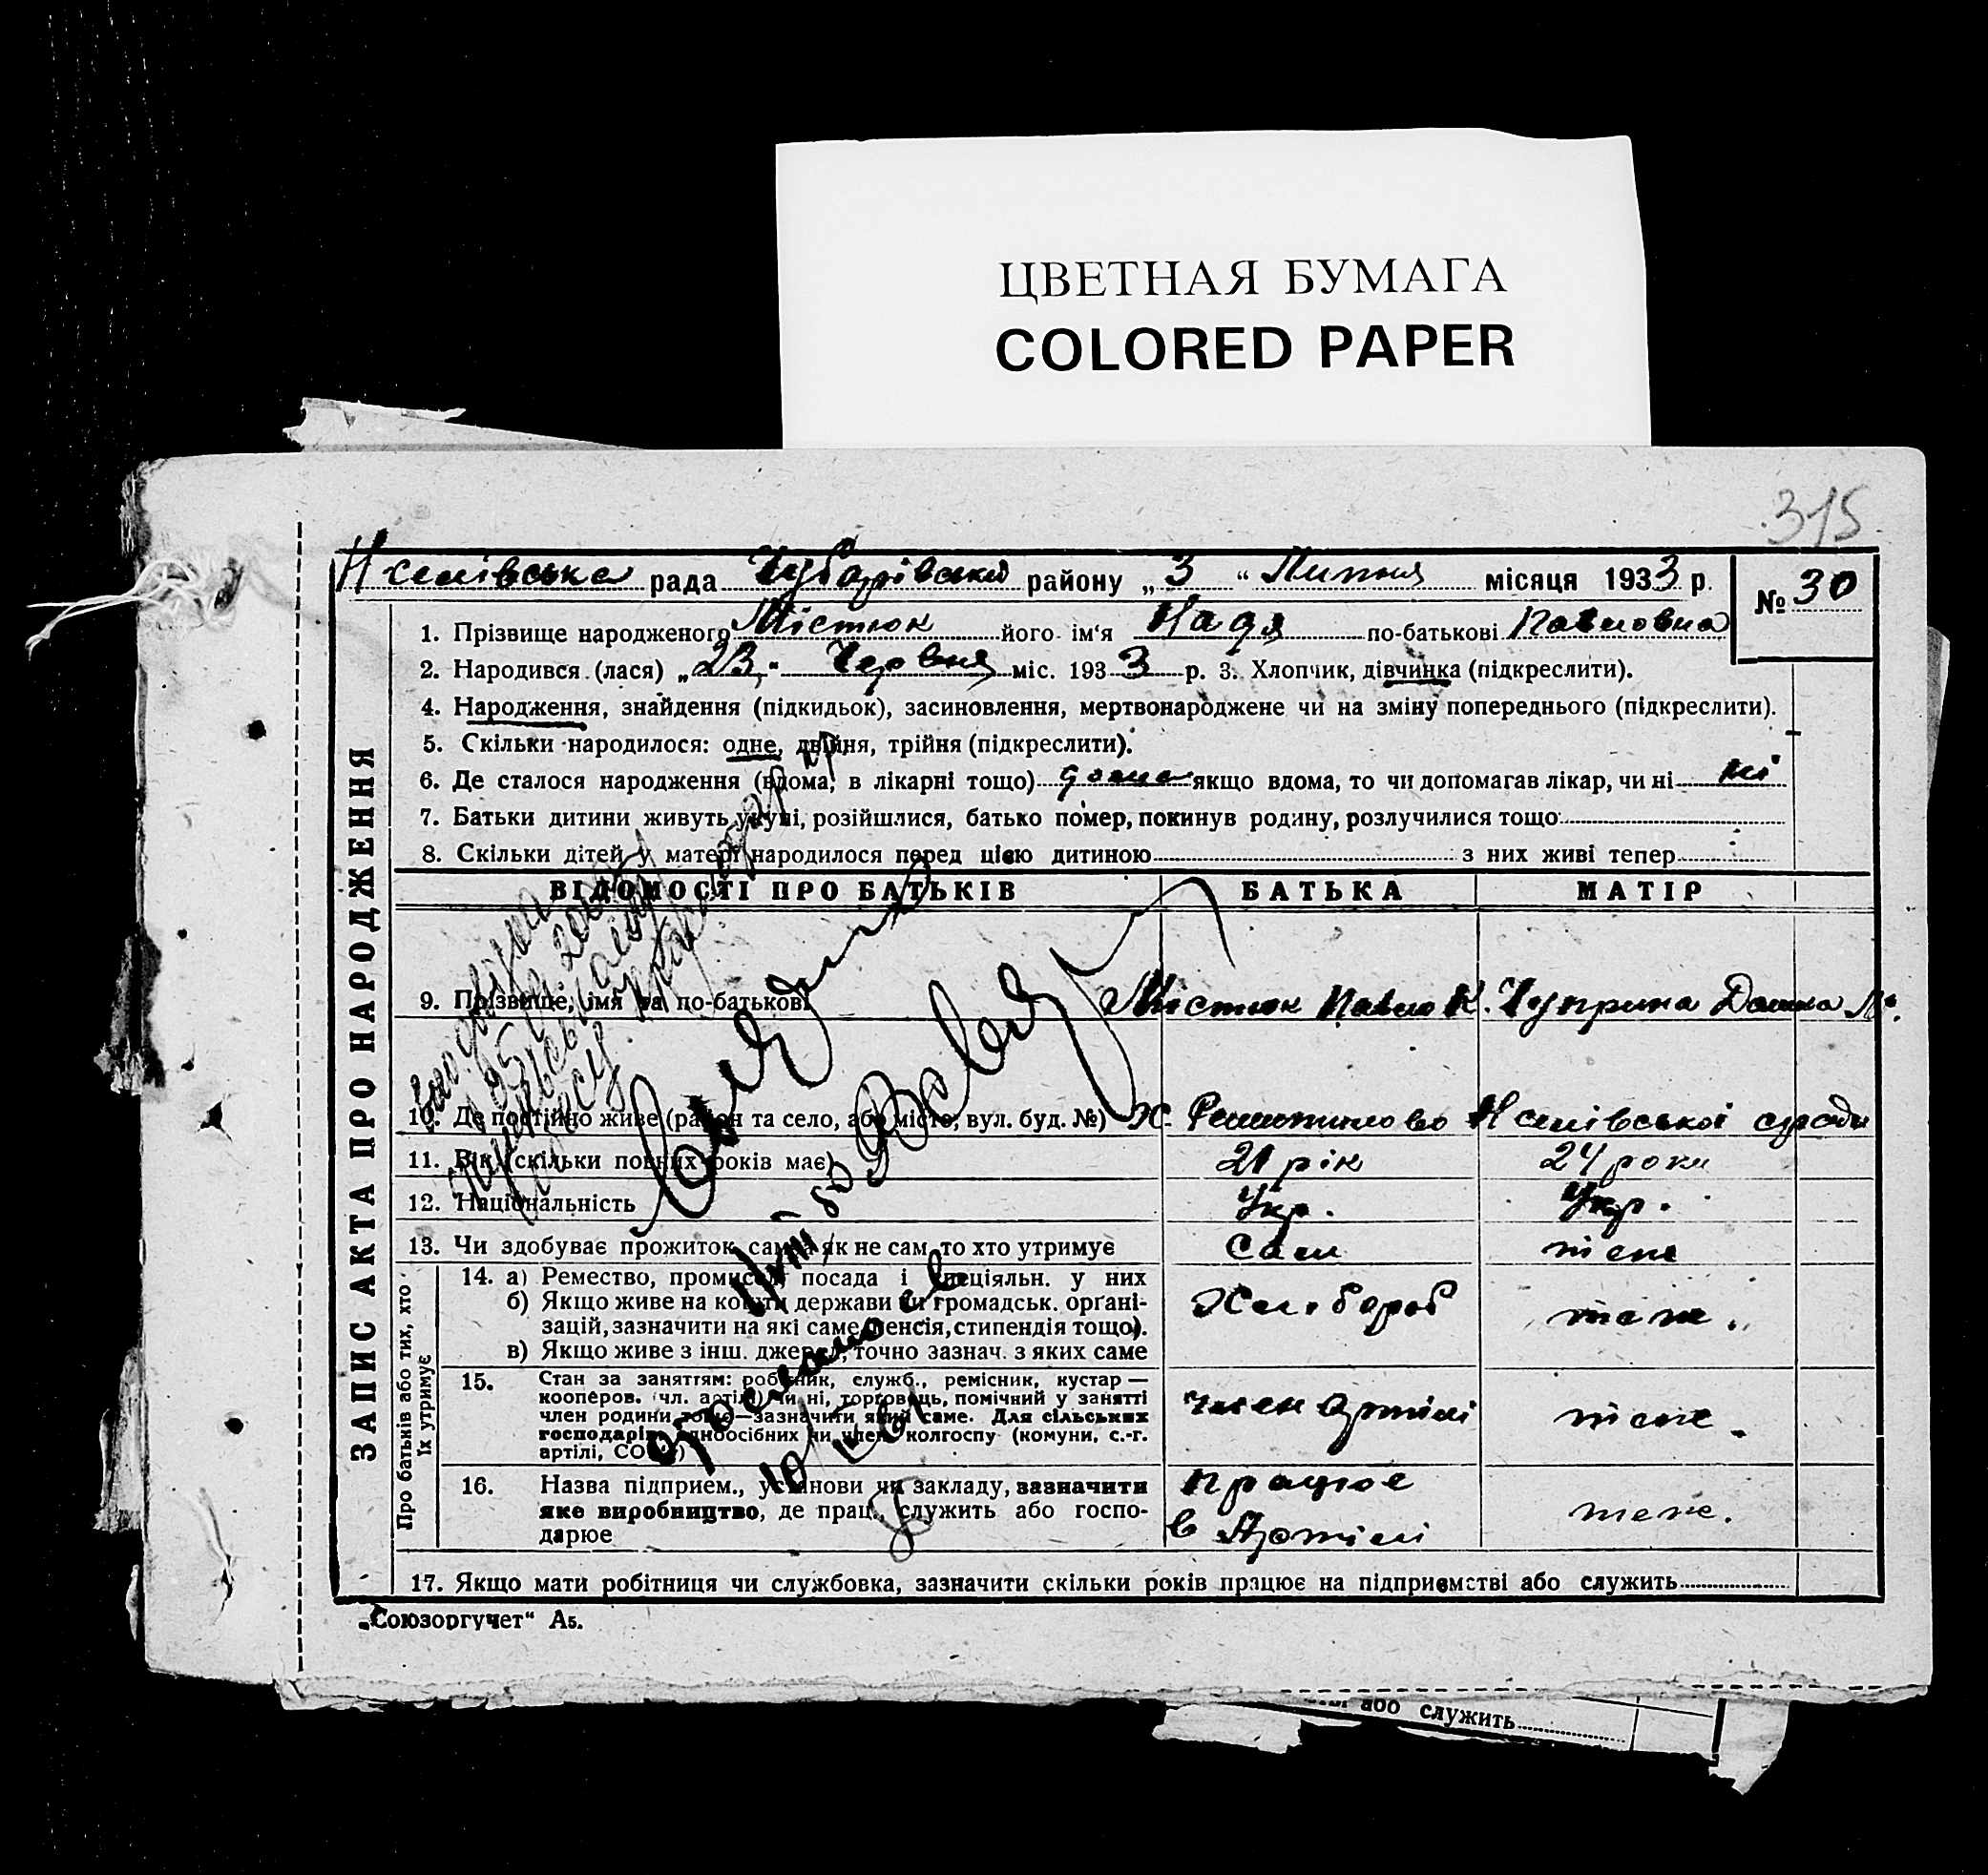 ЦВЕТНАЯ БУМАГА
COLORED PAPER
315
рада Чубарівський району „3“ Липня місяця 1933 р.
№ 30
1. Прізвище народженого Містюк його ім'я Надя по-батькові Павловна
2. Народився (лася) „23“ Червня міс. 1933 р. 3. Хлопчик, дівчинка (підкреслити).
4. Народження, знайдення (підкидьок), засиновлення, мертвонароджене чи на зміну попереднього (підкреслити).
5. Скільки народилося: одне, двійня, трійня (підкреслити).
6. Де сталося народження (вдома, в лікарні тощо) дома якщо вдома, то чи допомагав лікар, чи ні ні
7. Батьки дитини живуть укупі, розійшлися, батько помер, покинув родину, розлучилися тощо
8. Скільки дітей у матері народилося перед цією дитиною з них живі тепер
ЗАПИС АКТА ПРО НАРОДЖЕННЯ
ВІДОМОСТІ ПРО БАТЬКІВ БАТЬКА МАТІР
9. Прізвище, імя та по-батькові Містюк Павло К. Чуприна Домна М.
10. Де постійно живе (район та село, або місто, вул. буд. №) Х.
11. Вік (скільки повних років має) 21 рік 24 роки
12. Національність Укр. Укр.
13. Чи здобуває прожиток сам, а як не сам, то хто утримує Сам теж
Про батьків або тих, хто їх утримує
14. а) Ремество, промисел, посада і спеціяльн. у них
б) Якщо живе на кошти держави чи громадськ. органі-
зацій, зазначити на які саме (пенсія, стипендія тощо).
в) Якщо живе з інш. джерел, точно зазнач. з яких саме
Хлібороб теж.
15. Стан за заняттям: робітник, служб., ремісник, кустар —
кооперов. (чл. артілі) чи ні, торговець, помічний у занятті
член родини тощо—зазначити який саме. Для сільських
господарів: одноосібних чи член колгоспу (комуни, с.-г.
артілі, СОЗ'у)
член Артілі теж.
16. Назва підприєм., установи чи закладу, зазначити
яке виробництво, де прац., служить або госпо-
дарює
працює
в Артілі
теж.
17. Якщо мати робітниця чи службовка, зазначити скільки років працює на підприємстві або служить
„Союзоргучет“ А5.
або служить